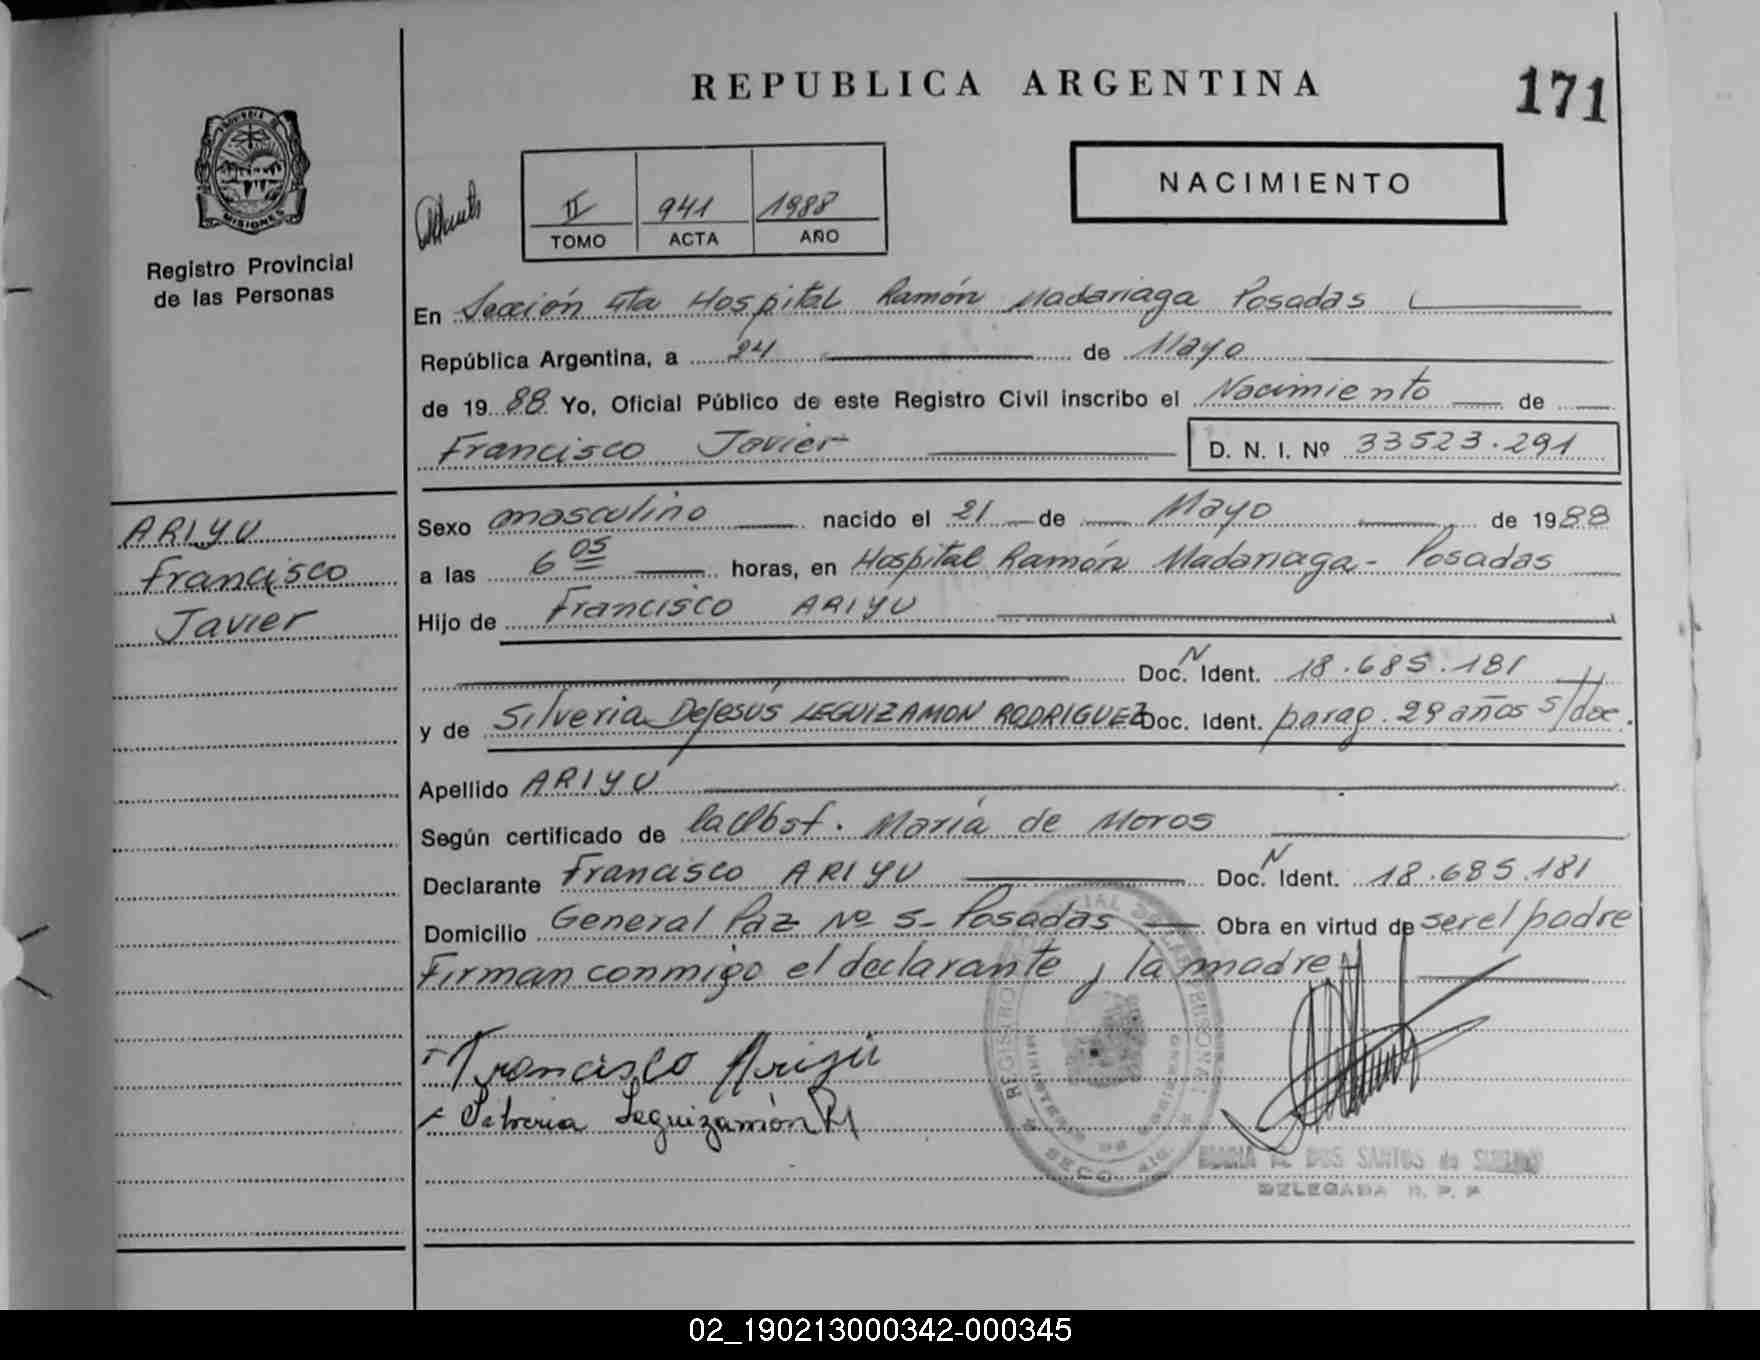 REPUBLICA ARGENTINA
171
NACIMIENTO
II 941 1988
TOMO ACTA AÑO
MISIONES
Registro Provincial
de las Personas
En Sección 4ta Hospital Ramón Madariaga Posadas
República Argentina, a 24 de Mayo
de 1988 Yo, Oficial Público de este Registro Civil inscribo el Nacimiento de
Francisco Javier D. N. I. Nº 33523.291
ARIYU
Francisco
Javier
Sexo masculino nacido el 21 de Mayo de 1988
a las 6 05 horas, en Hospital Ramón Madariaga - Posadas
Hijo de Francisco ARIYU
Doc. N Ident. 18.685.181
y de Silveria DeJesús LEGUIZAMON RODRIGUEZ Doc. Ident. parag. 29 años s/doc.
Apellido ARIYU
Según certificado de la Obst. María de Moros
Declarante Francisco ARIYU Doc. N Ident. 18.685.181
Domicilio General Paz Nº 5- Posadas Obra en virtud de ser el padre
Firman conmigo el declarante y la madre
Francisco Ariyú
Leguizamón R
DOS SANTOS de
DELEGADA R. P. P
02_190213000342-000345